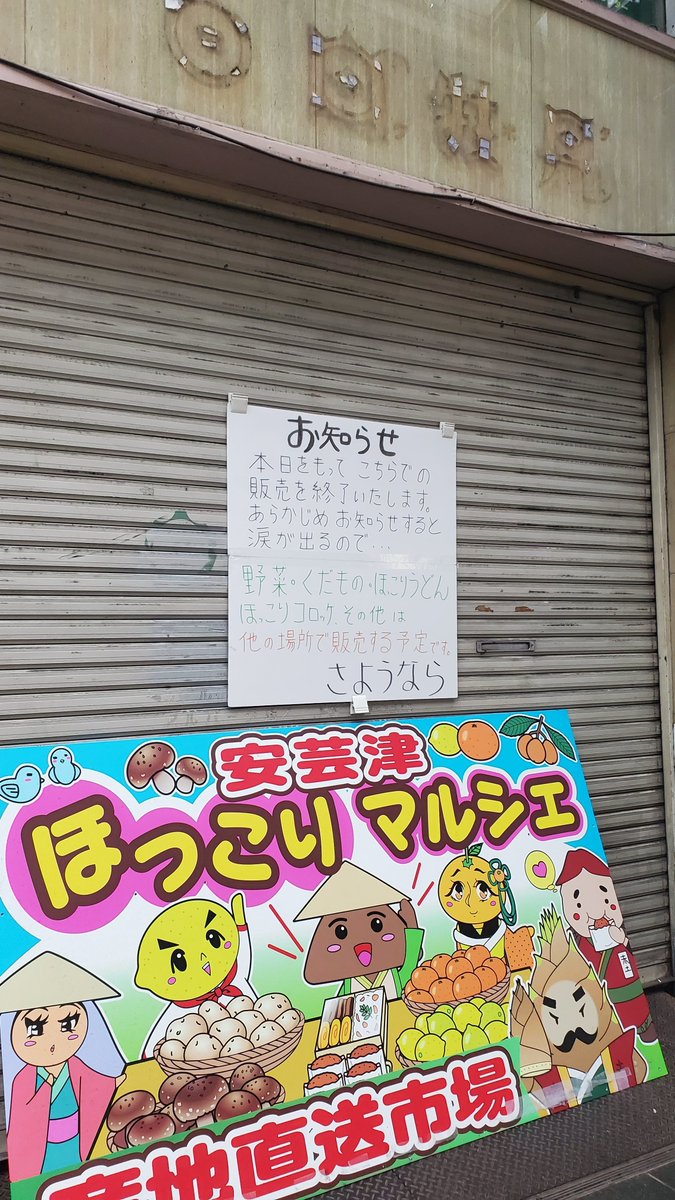 お知らせ
本日をもって こちらでの
販売を終了いたします。
あらかじめ お知らせすると
涙が出るので…
野菜・くだもの・ほこりうどん
ほっこりコロッケ、その他 は
他の場所で販売する予定です。
さようなら
安芸津
ほっこり マルシェ
赤土
産地直送市場